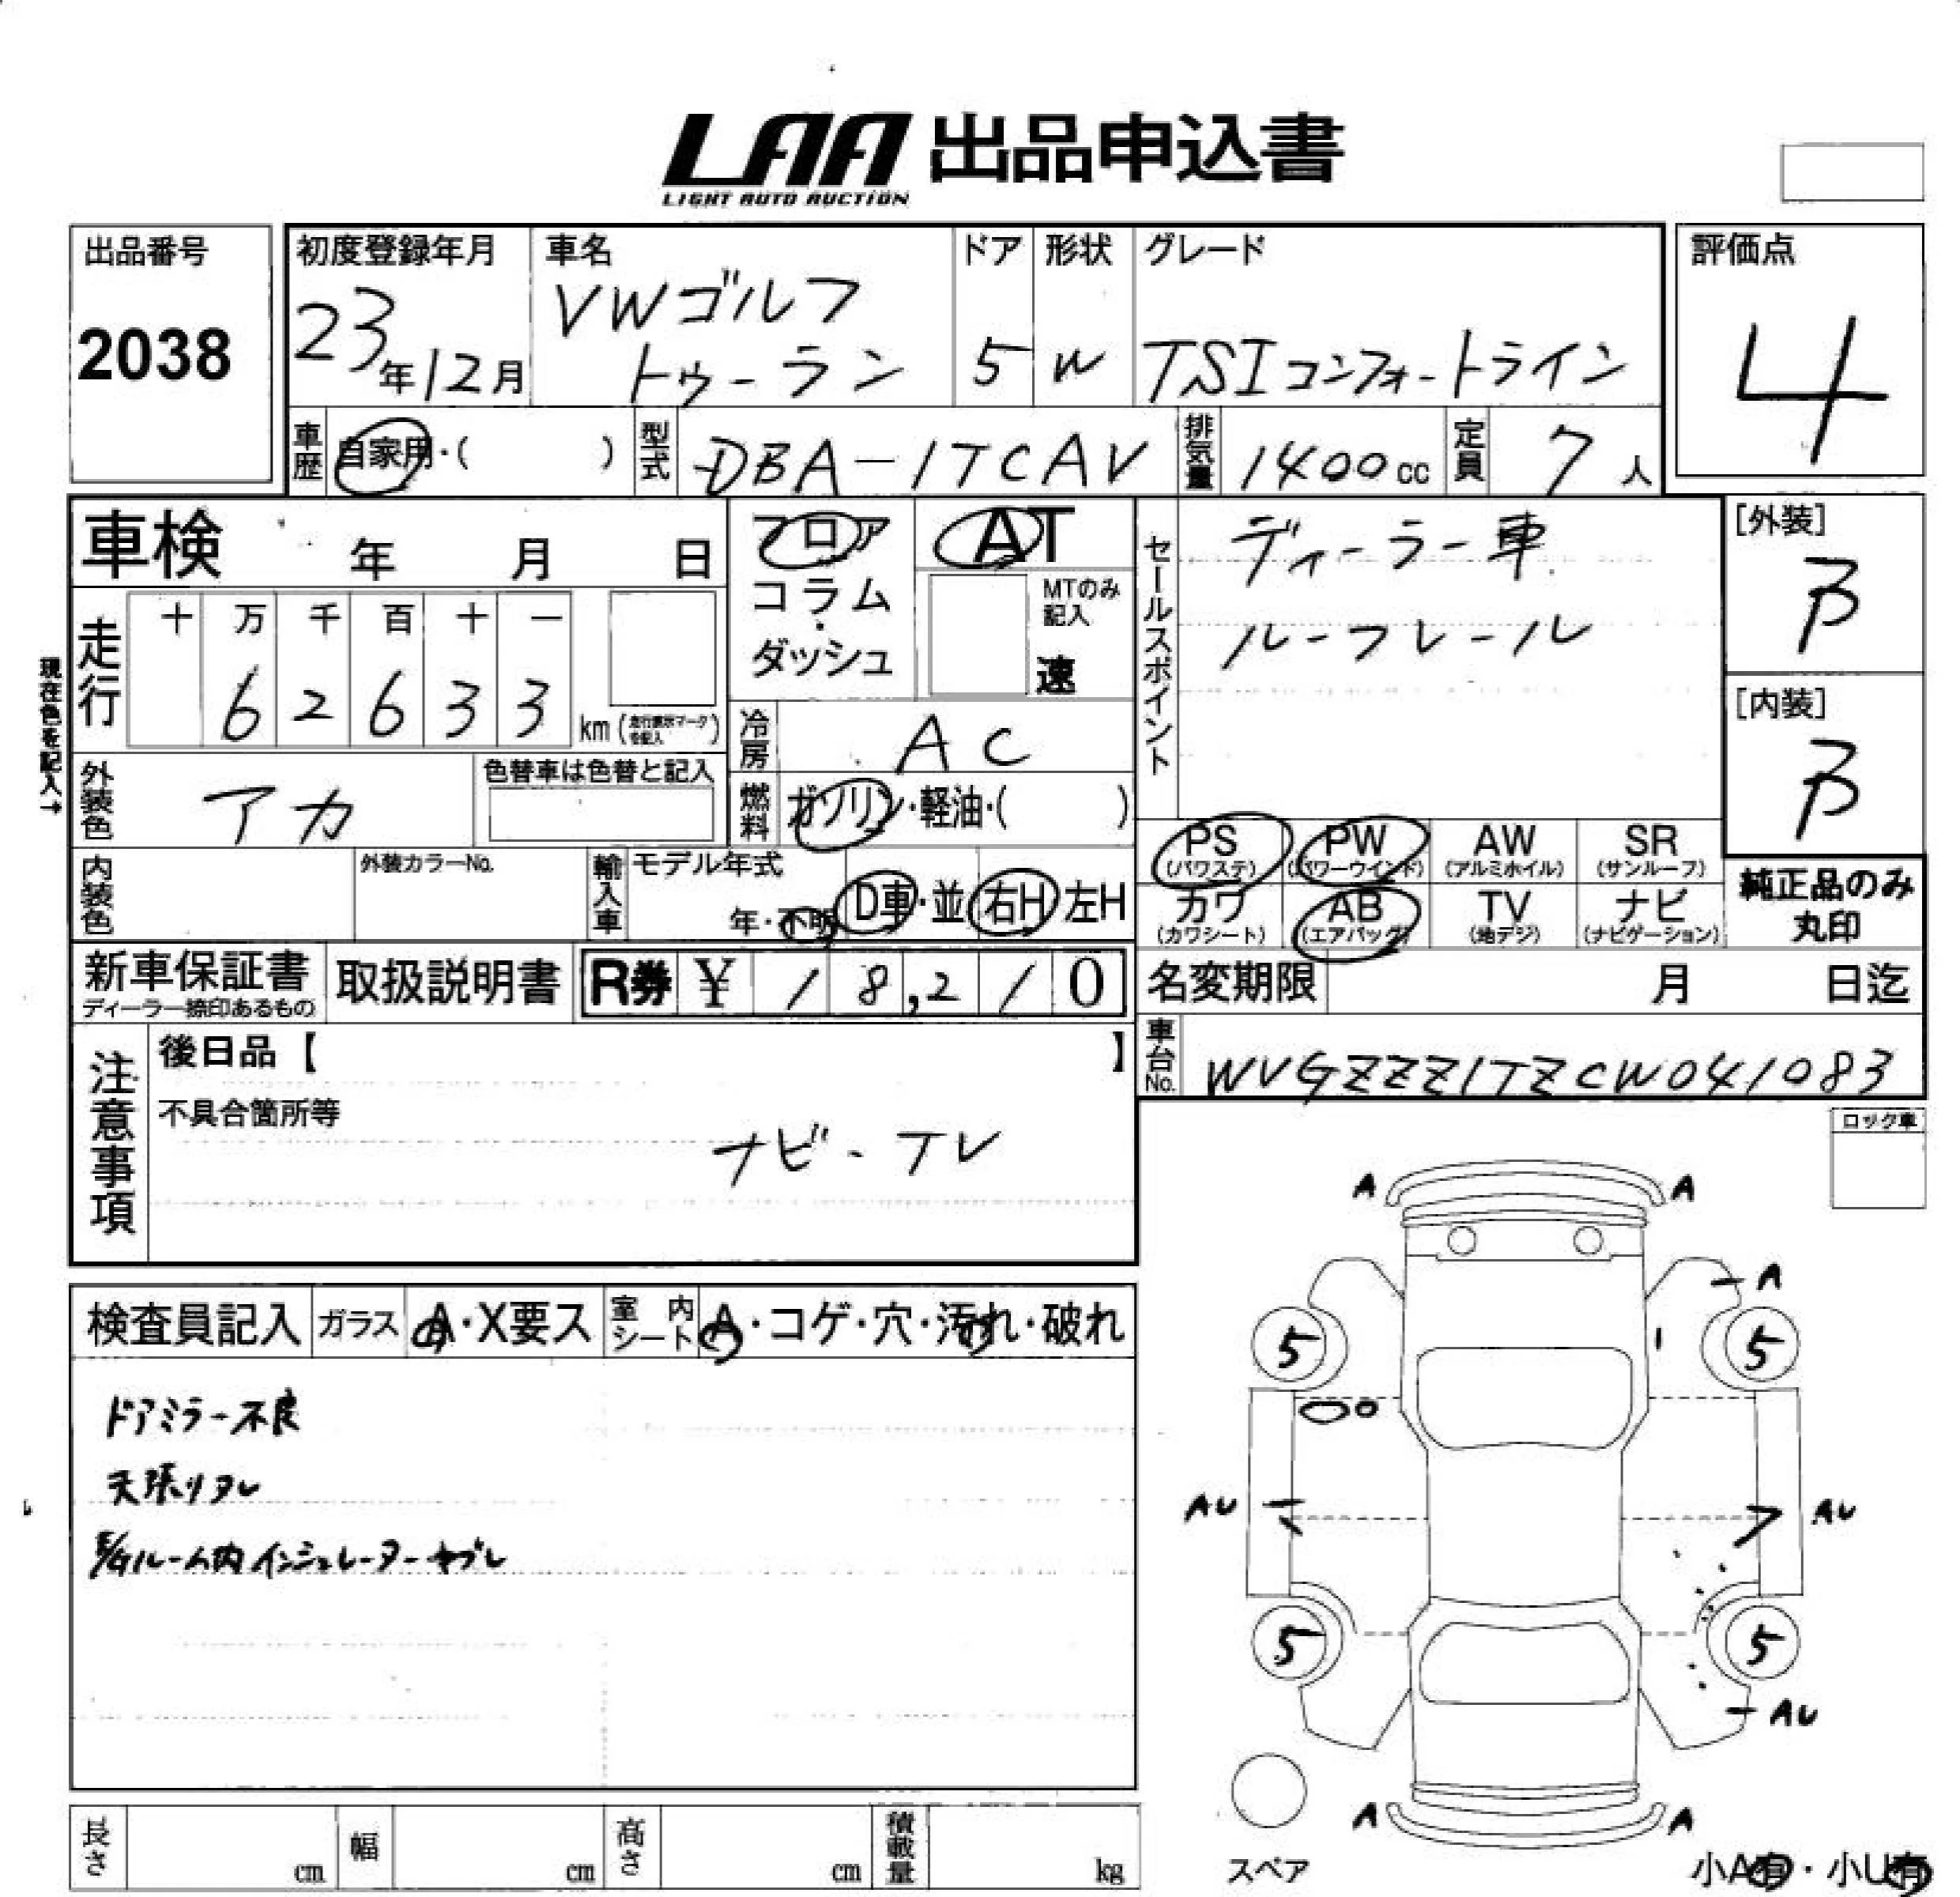 LAA 出品申込書
LIGHT AUTO AUCTION
出品番号
2038
初度登録年月
23年12月
車名
VWゴルフ
トゥーラン
ドア
5
形状
W
グレード
TSIコンフォートライン
評価点
4
車歴
自家用・( )
型式
DBA-1TCAV
排気量
1400cc
定員
7人
車検 年 月 日
フロア
コラム
・
ダッシュ
AT
MTのみ
記入
速
セールスポイント
ディーラー車
ルーフレール
[外装]
B
[内装]
B
現在色を記入→
走行
十 万 千 百 十 一
6 2 6 3 3
km (走行表示マークを記入)
冷房
AC
外装色
アカ
色替車は色替と記入
燃料
ガソリン・軽油・( )
PS
(パワステ)
PW
(パワーウインド)
AW
(アルミホイル)
SR
(サンルーフ)
カワ
(カワシート)
AB
(エアバッグ)
TV
(地デジ)
ナビ
(ナビゲーション)
純正品のみ
丸印
内装色
外装カラーNo.
輸入車
モデル年式
年・不明
D車・並
右H 左H
新車保証書
ディーラー捺印あるもの
取扱説明書
R券 ¥ 18,210
名変期限 月 日迄
車台No.
WVGZZZ1TZCW041083
注意事項
後日品【 】
不具合箇所等
ナビ-TV
ロック車
検査員記入
ガラス
A・X要ス
室内シート
A・コゲ・穴・汚れ・破れ
ドアミラー不良
天張りタレ
E/Gルーム内インシュレーターヤブレ
A A
A
5 5
AU AU
5 5
AU
A A
スペア
小A有・小U有
長さ cm
幅 cm
高さ cm
積載量 kg